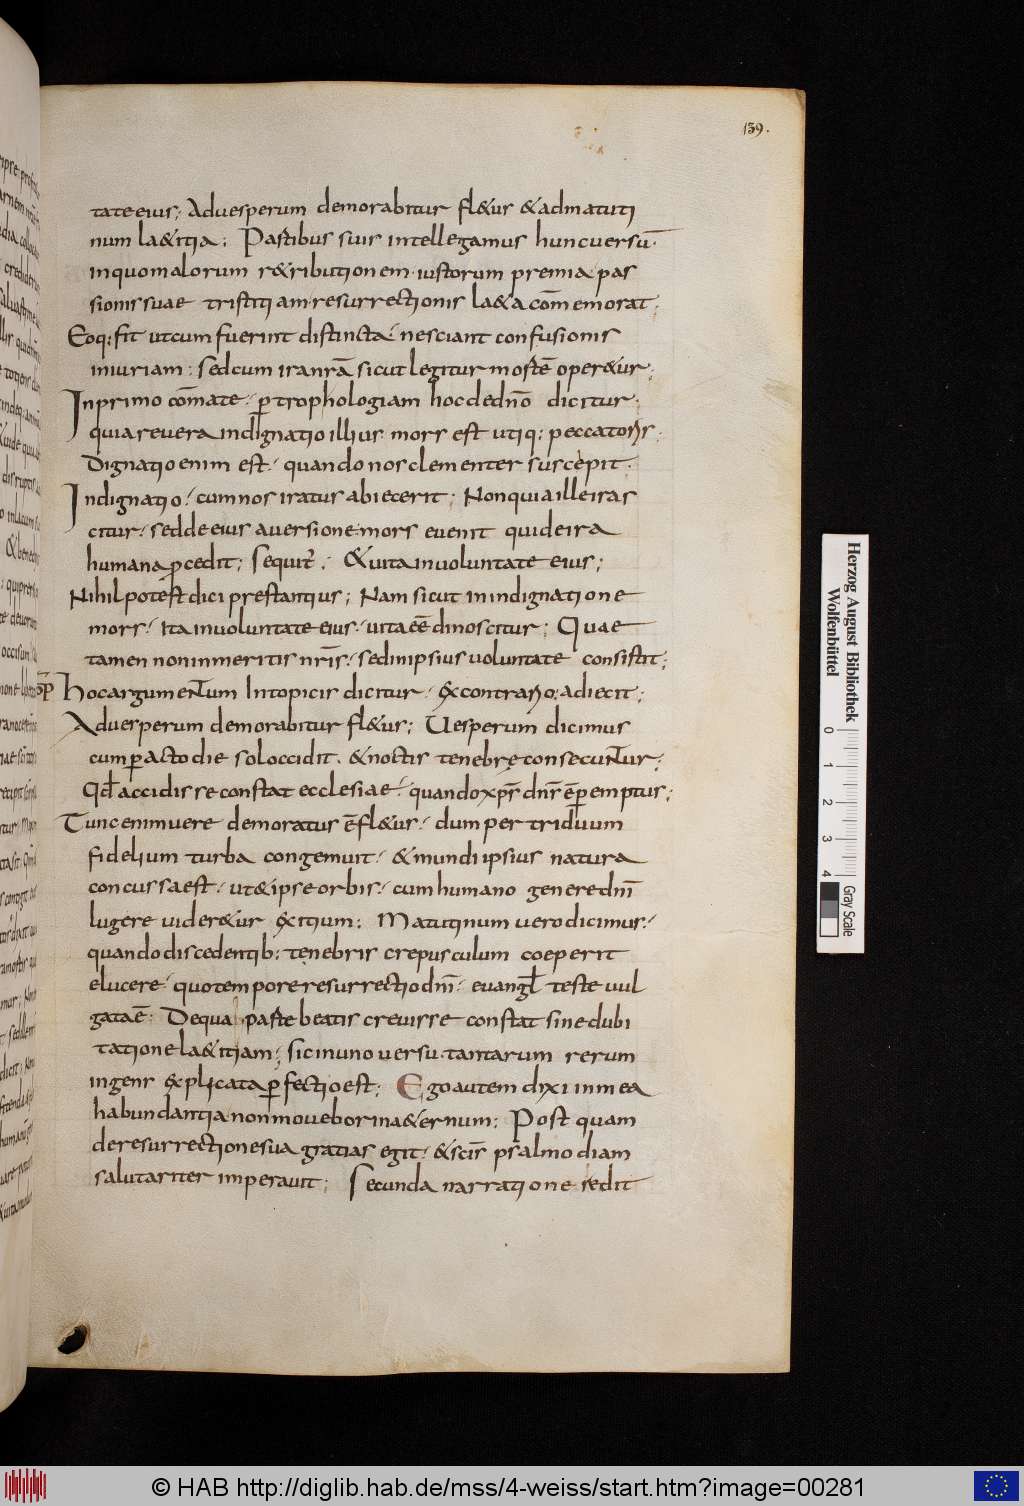 139.
tate eius; Ad uesperum demorabitur fl&us & ad matuti
num la&itia; Partibus suis intellegamus hunc uersū.
in quo malorum r&ributionem. iustorum premia. pas
sionis suae tristitiam. resurrectionis la&a cōmemorat;
Eoq; fit ut cum fuerint distincta. nesciant confusionis
iniuriam; sed cum ira nr̄a sicut legitur in hoste ēoper&ur;
In primo cōmate. ꝑ trophologiam hoc de dn̄o dicitur.
quia reuera indignatio illius mors est utiq; peccatoris;
Dignatio enim est. quando nos clementer suscepit.
Indignatio. cum nos iratus abiecerit; Non quia ille iras
citur. sed de eius auersione mors euenit qui de ira
humana ꝓcedit; sequit̄; & uita in uoluntate eius;
Nihil potest dici prestantius; Nam sicut in indignatione
mors. ita in uoluntate eius. uita eē dinoscitur; Quae
tamen non in meritis nr̄is. sed in ipsius uoluntate consistit;
Hoc argumentum In topicis dicitur. ex contrario: adiecit;
Ad uesperum demorabitur fl&us; Uesperum dicimus
cum ꝑacto die sol occidit. & noctis tenebrę consecuntur;
Qd̄ accidisse constat ecclesiae. quando xp̄s dn̄s ē ꝑemptus;
Tunc enim uere demoratus ē fl&us. dum per triduum
fidelium turba congemuit. & mundi ipsius natura
concussa est. ut & ipse orbis. cum humano genere dn̄m
lugere uider&ur exitium; Matutinum uero dicimus.
quando discedentib; tenebris crepusculum coeperit
elucere. quo tempore resurrectio dn̄i. euangl̄ teste uul
gata ē. De qua parte beatis creuisse constat sine dubi
tatione la&itiam; sic in uno uersu. tantarum rerum
ingens explicata ꝑfectio est; Ego autem dixi in mea
habundantia non mouebor in a&ernum; Post quam
de resurrectione sua gratias egit. & scīs psalmodiam
salutariter imperauit; Secunda narratione redit
Herzog August Bibliothek
Wolfenbüttel
0 1 2 3 4
Gray Scale
© HAB http://diglib.hab.de/mss/4-weiss/start.htm?image=00281